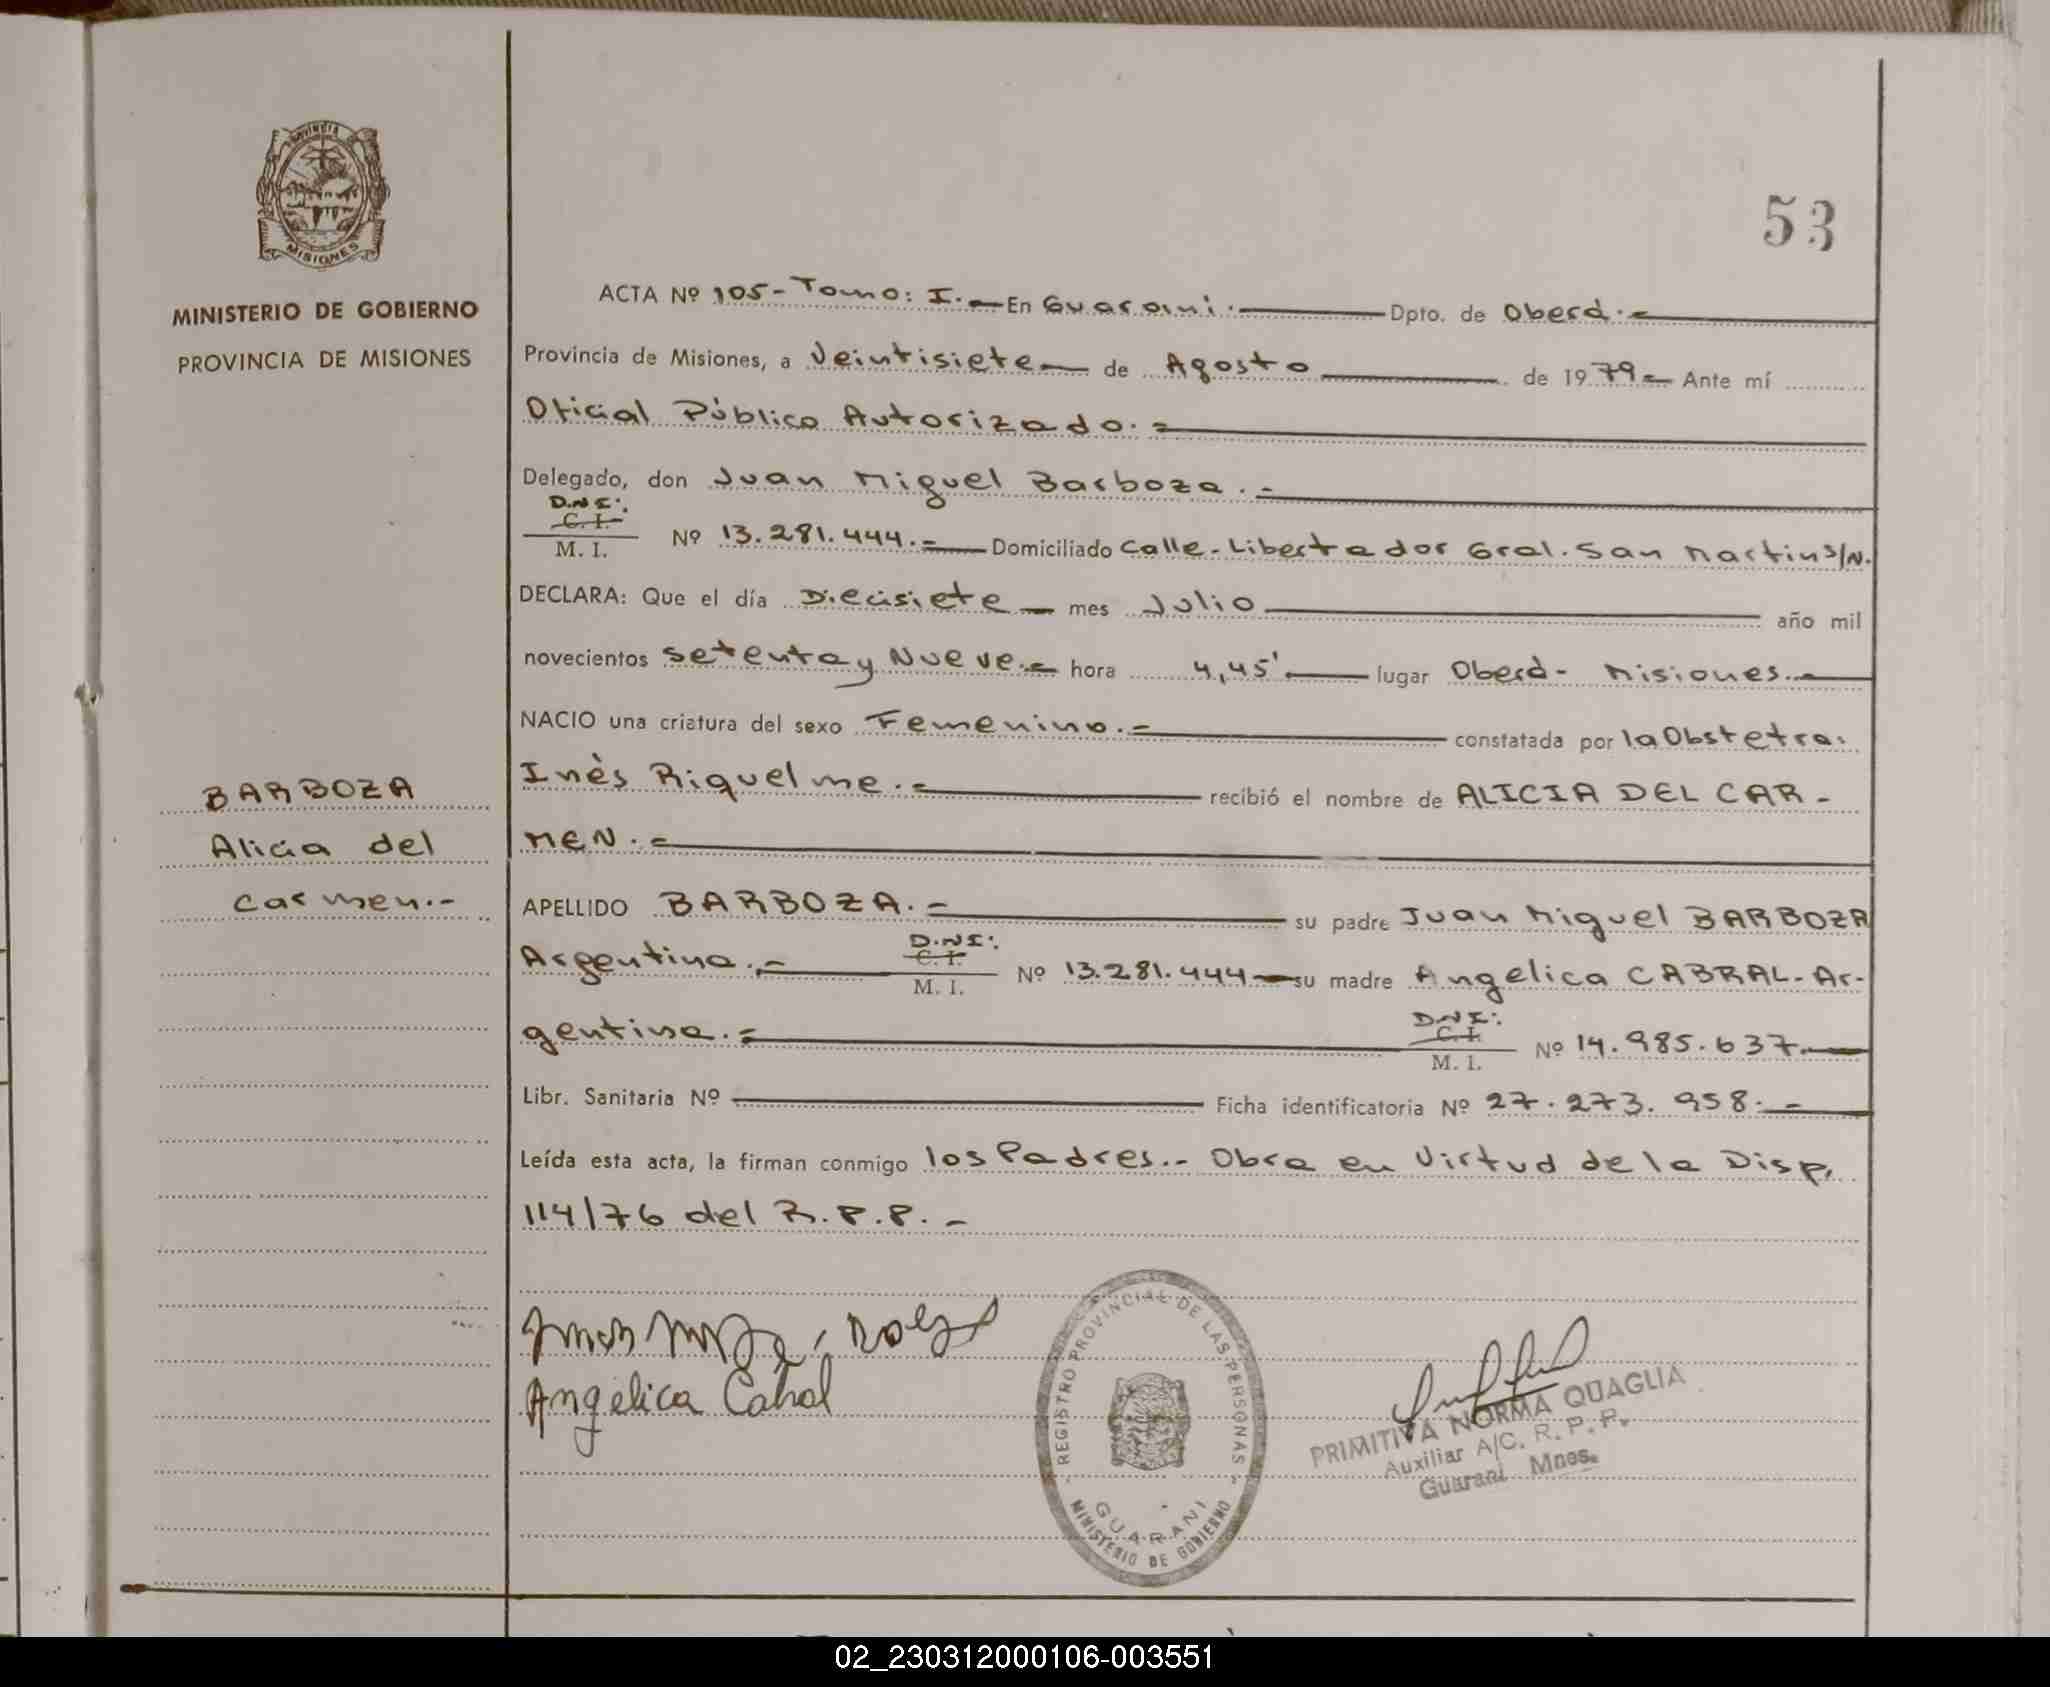 PROVINCIA
MISIONES
MINISTERIO DE GOBIERNO
PROVINCIA DE MISIONES
53
ACTA Nº 105-Tomo: I.- En Guarani.- Dpto. de Oberá.-
Provincia de Misiones, a Veintisiete- de Agosto de 1979- Ante mí
Oficial Público Autorizado.-
Delegado, don Juan Miguel Barboza.-
D.N.I:
C. I.
M. I.
Nº 13.281.444.- Domiciliado Calle-Libertador Gral. San Martin S/N.
DECLARA: Que el día Diecisiete- mes Julio año mil
novecientos setenta y Nueve.- hora 4,45'.- lugar Oberá- Misiones.-
NACIO una criatura del sexo Femenino.- constatada por la Obstetra:
Inés Riquelme.- recibió el nombre de ALICIA DEL CAR-
MEN.-
BARBOZA
Alicia del
Carmen.-
APELLIDO BARBOZA.- su padre Juan Miguel BARBOZA
D.N.I:
C. I.
Argentino.- M. I. Nº 13.281.444- su madre Angelica CABRAL-Ar-
D.N.I:
C. I.
gentina.- M. I. Nº 14.985.637.-
Libr. Sanitaria Nº Ficha identificatoria Nº 27.273.958.-
Leída esta acta, la firman conmigo los Padres.- Obra en Virtud de la Disp.
114/76 del R.P.P.-
Angélica Cabral
REGISTRO PROVINCIAL DE LAS PERSONAS
GUARANI
MINISTERIO DE GOBIERNO
PRIMITIVA NORMA QUAGLIA
Auxiliar A/C. R. P. P.
Guarani Mnes.
02_230312000106-003551